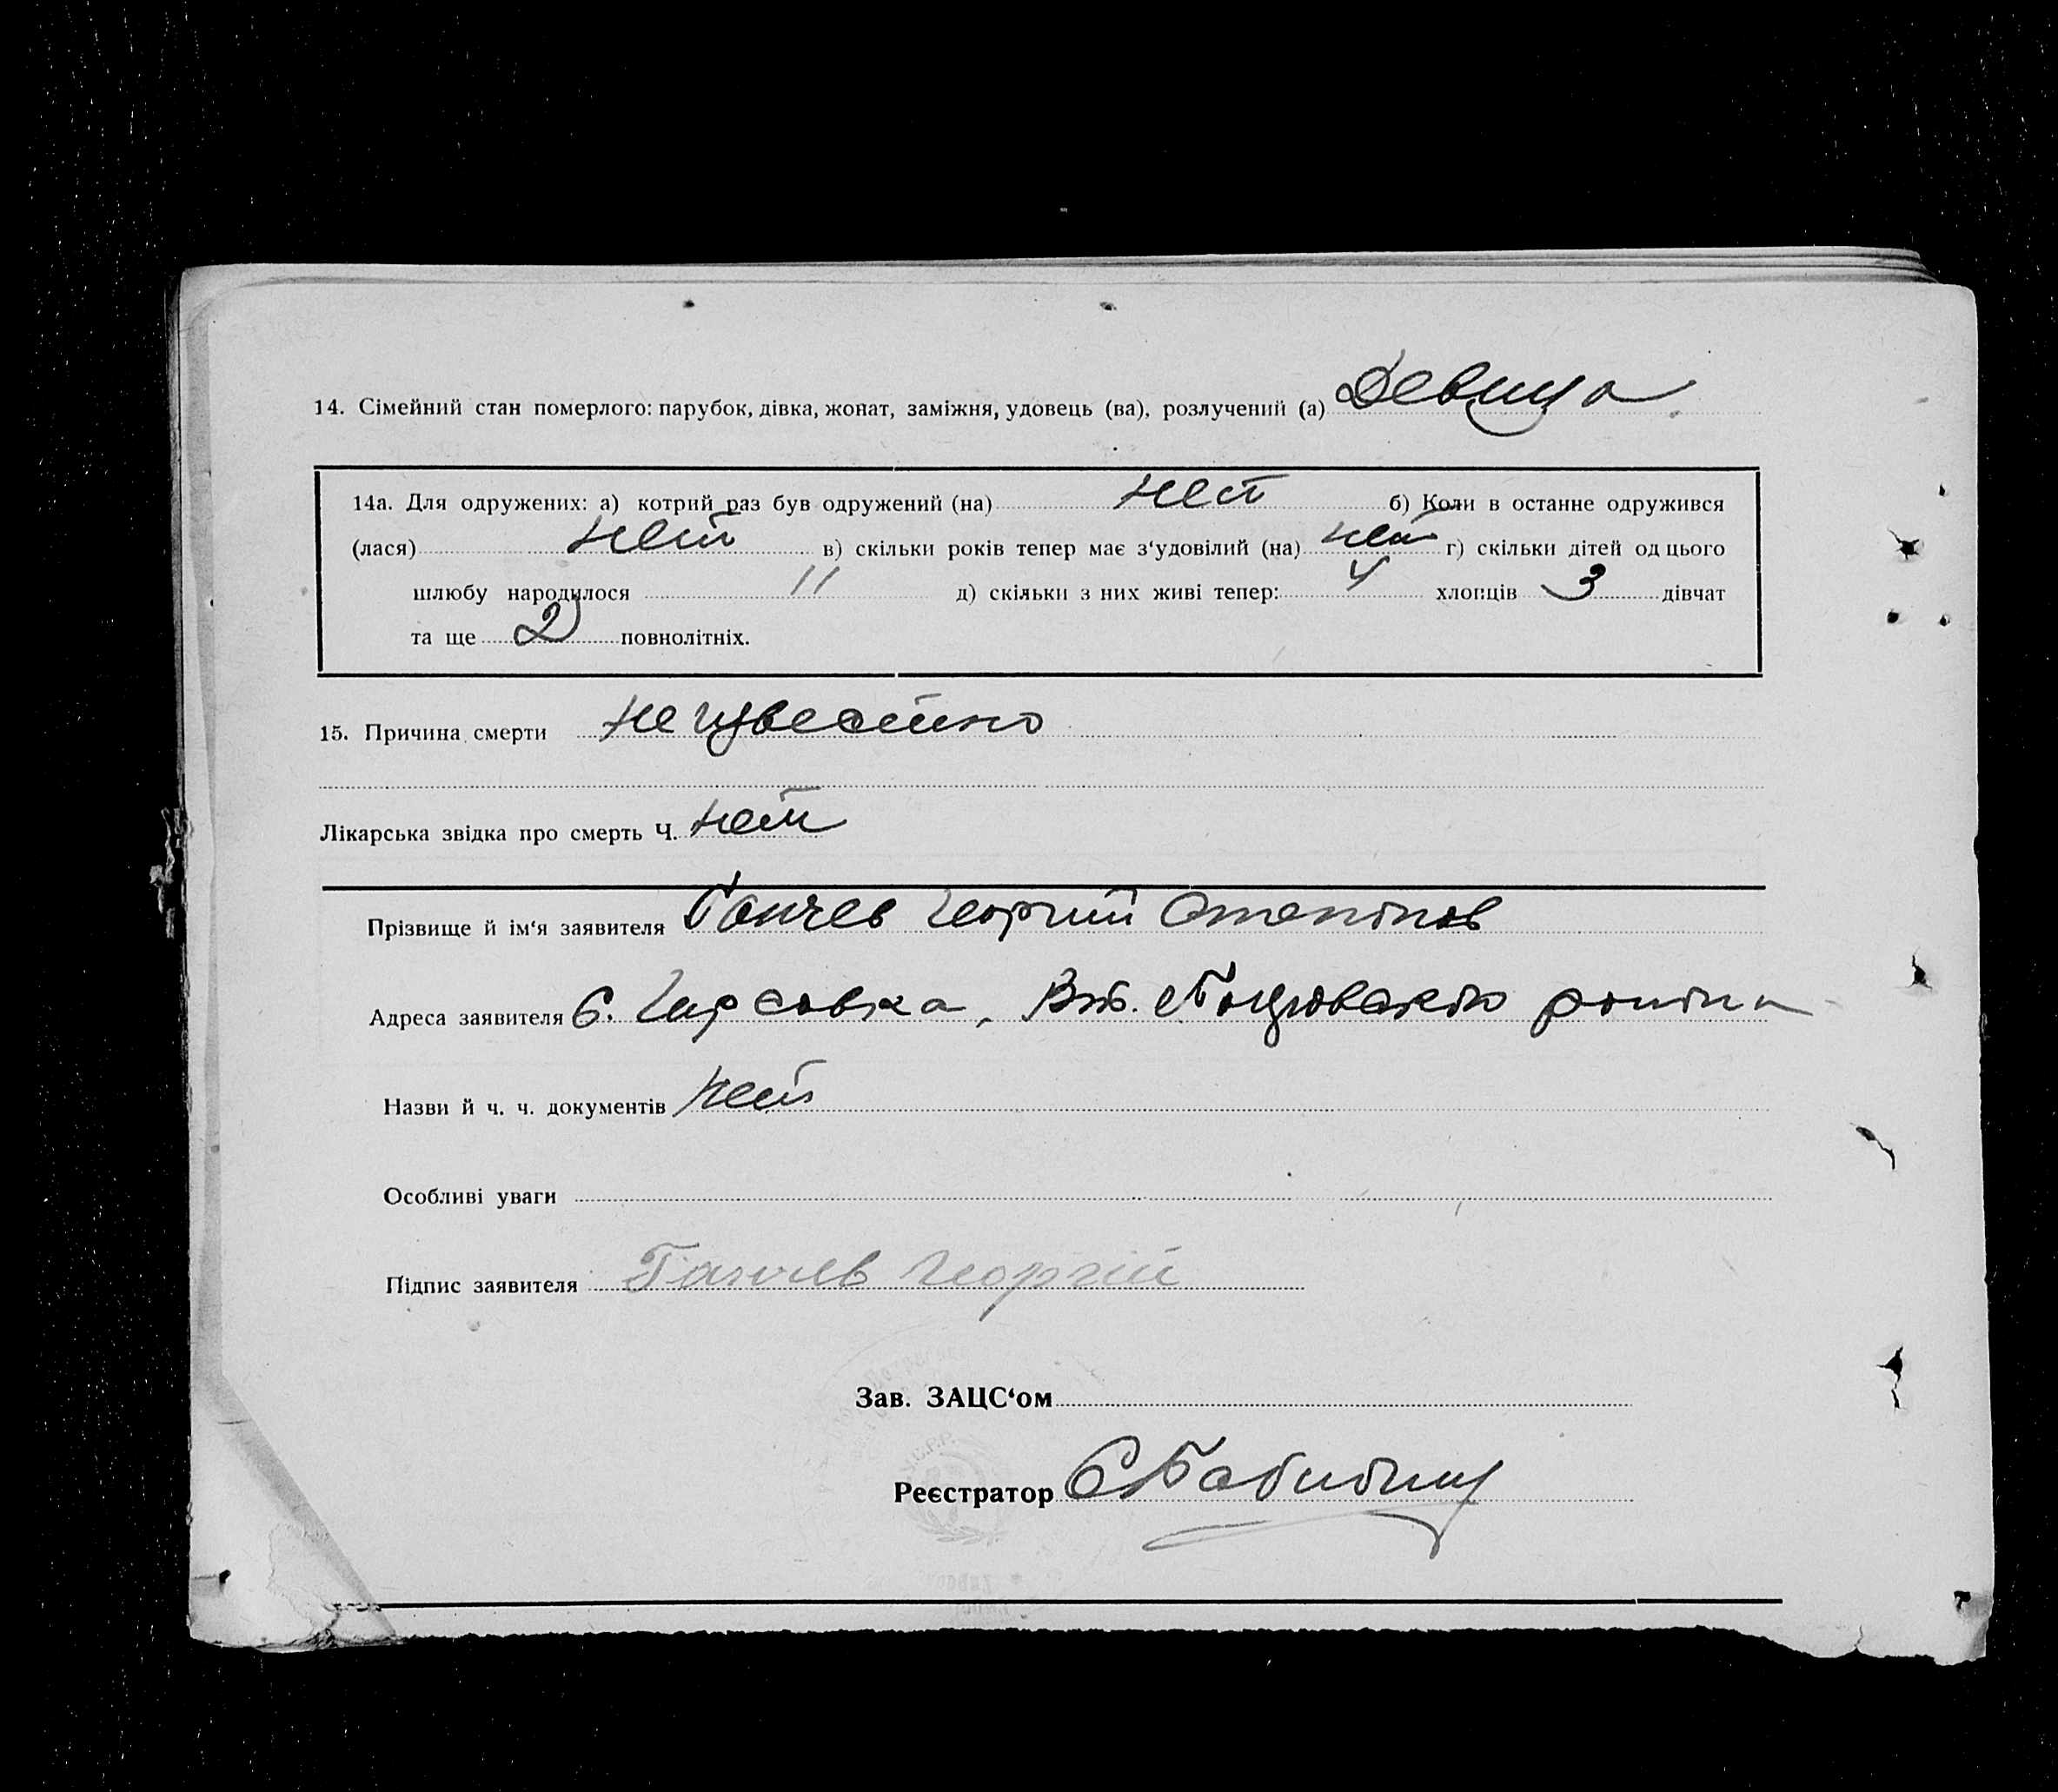 14. Сімейний стан померлого: парубок, дівка, жонат, заміжня, удовець (ва), розлучений (а) Девица
14а. Для одружених: а) котрий раз був одружений (на) нет б) Коли в останне одружився
(лася) нет в) скільки років тепер має з'удовілий (на) нет г) скільки дітей од цього
шлюбу народилося 11 д) скільки з них живі тепер: 4 хлопців 3 дівчат
та ще 2 повнолітніх.
15. Причина смерти неизвестно
Лікарська звідка про смерть Ч. нет
Прізвище й ім'я заявителя Ганчев Георгий
Адреса заявителя с. Гирсовка,
Назви й ч. ч. документів нет
Особливі уваги
Підпис заявителя Ганчев Георгий
Зав. ЗАЦС'ом
Реєстратор